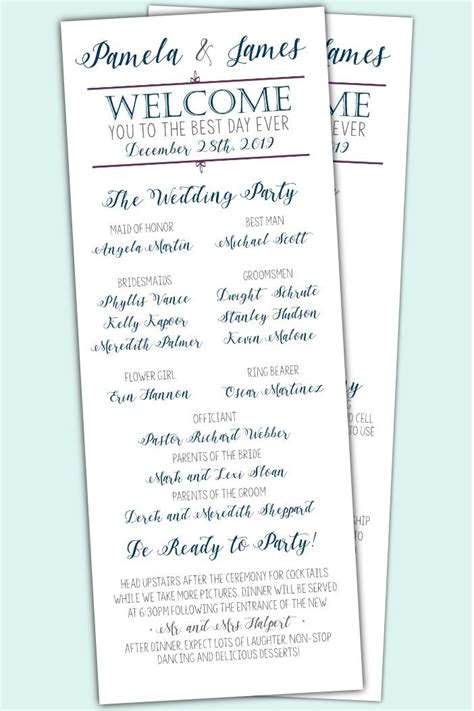 Pamela & James
James
WELCOME
YOU TO THE BEST DAY EVER
December 28th, 2019
The Wedding Party
MAID OF HONOR
Angela Martin
BEST MAN
Michael Scott
BRIDESMAIDS
Phyllis Vance
Kelly Kapoor
Meredith Palmer
GROOMSMEN
Dwight Schrute
Stanley Hudson
Kevin Malone
FLOWER GIRL
Erin Hannon
RING BEARER
Oscar Martinez
OFFICIANT
Pastor Richard Webber
PARENTS OF THE BRIDE
Mark and Lexi Sloan
PARENTS OF THE GROOM
Derek and Meredith Sheppard
Be Ready to Party!
HEAD UPSTAIRS AFTER THE CEREMONY FOR COCKTAILS
WHILE WE TAKE MORE PICTURES. DINNER WILL BE SERVED
AT 6:30PM FOLLOWING THE ENTRANCE OF THE NEW
• Mr. and Mrs. Halpert •
AFTER DINNER, EXPECT LOTS OF LAUGHTER, NON-STOP
DANCING AND DELICIOUS DESSERTS!
ME
EVER
2019
D CELL
TO USE